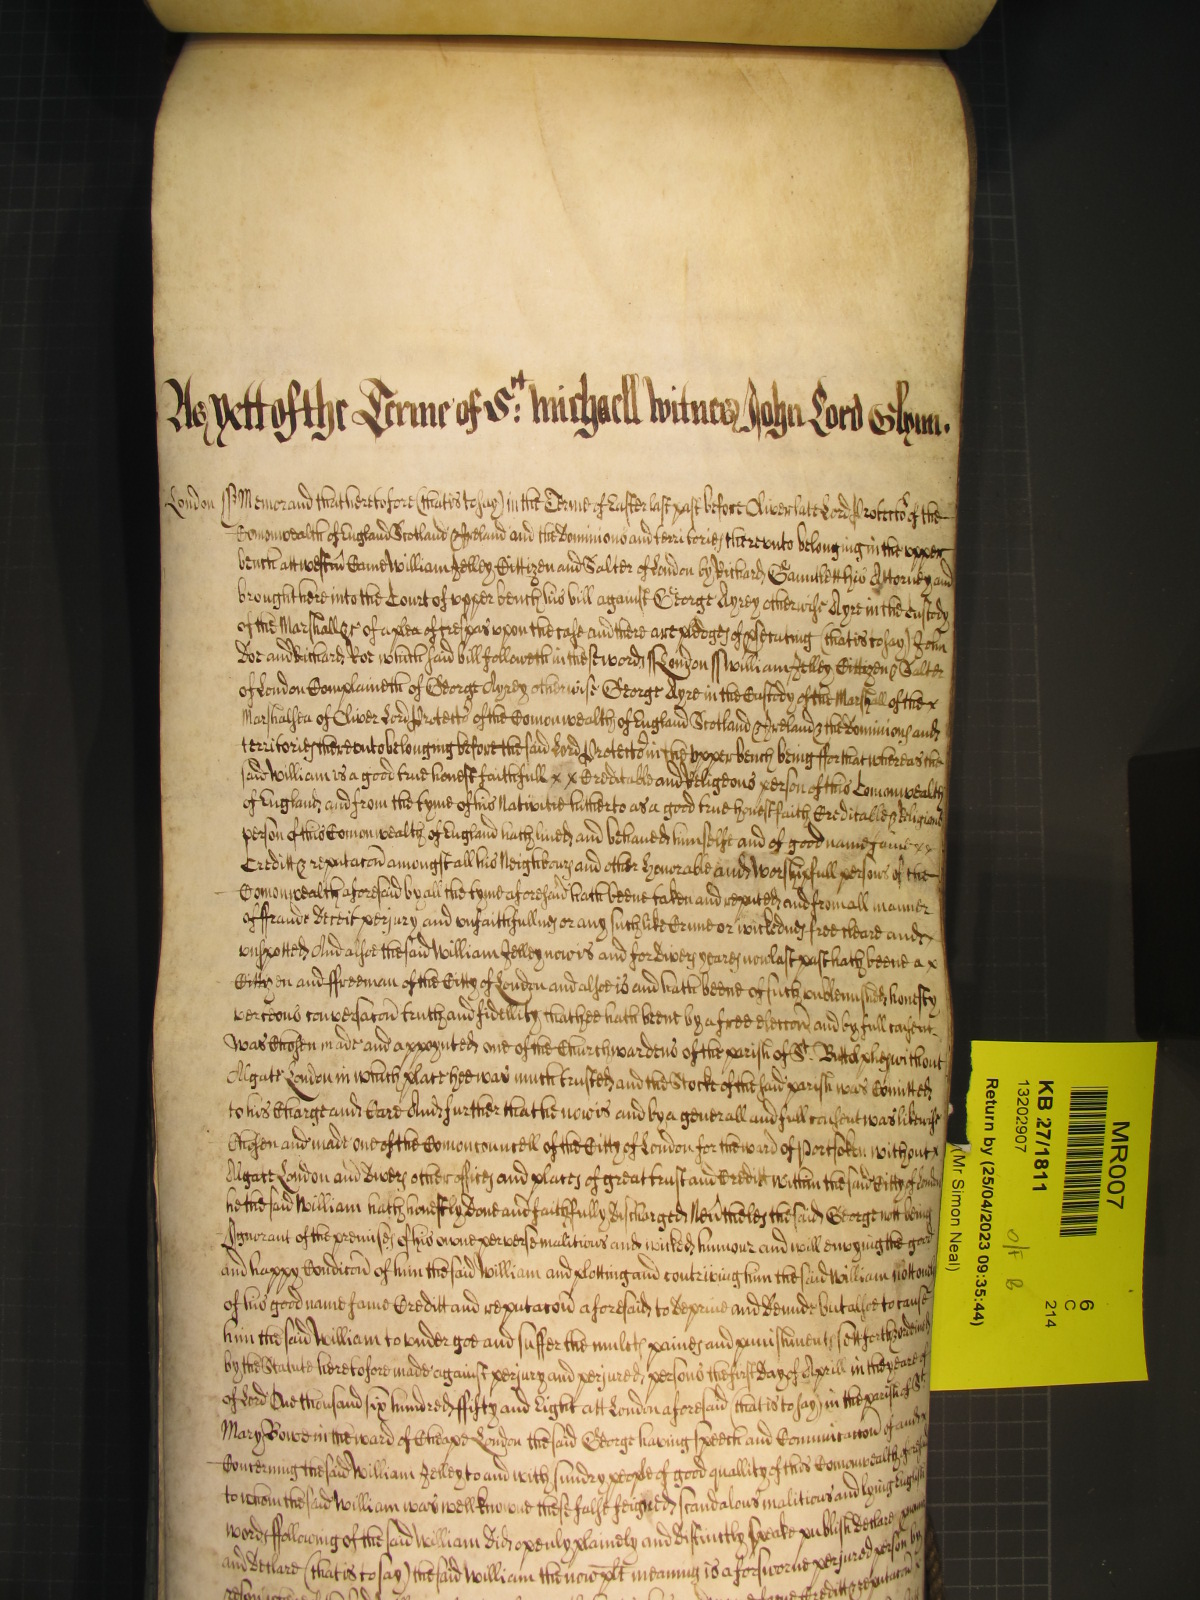 As yett of the Terme of St. Michaell Witnes John Lord Glynn.
London ss Memorand that heretofore (that is to say) in the Terme of Easter last past before Oliver late Lord Protector of the
Comonwealth of England Scotland & Ireland and the Dominions and territories thereunto belonging in the upper
bench att westm Came William Jelley Cittizen and Salter of London by Richard Gauntlett his Attorney and
brought here into the Court of upper bench his bill against George Ayrey otherwise Ayre in the Custody
of the Marshall &c of a plea of trespas upon the case and there are pledges of psecuting (that is to say) John
Doe and Richard Roe which said bill followeth in these words ss London ss William Jelley Cittizen & Salter
of London Complaineth of George Ayrey otherwise George Ayre in the Custody of the Marshall of the x
Marshalsea of Oliver Lord Protector of the Comonwealth of England Scotland & Ireland & the Dominions and
territories thereunto belonging before the said Lord Protector in the upper bench being ffor that whereas the
said William is a good true honest faithfull x x Creditable and Religeous person of this Comonwealth
of England and from the tyme of his Nativitie hitherto as a good true honest faith Creditable & Religious
person of this Comonwealth of England hath lived and behaved himselfe and of good name fame x x
Creditt & reputacon amongst all his Neighbours and other honorable and worshipfull persons of the
Comonwealth aforesaid by all the tyme aforesaid hath beene taken and reputed and from all manner
of ffraude deceit perjury and unfaithfullnes or any such like Crime or wickednes free cleare and x
unspotted And alsoe the said William Jelley now is and for divers yeares now last past hath beene a x
Cittizen and ffreeman of the Citty of London and alsoe is and hath beene of such unblemished honesty
verteous conversacon truth and fidellity that hee hath beene by a free eleccon and by full consent
was Chosen made and appoynted one of the Churchwardens of the parish of St. Buttolphes without
Algate London in which place hee was much trusted and the Stocke of the said parish was Comitted
to his Charge and Care And further that he now is and by a generall and full consent was likewise
Chosen and made one of the Comon councell of the Citty of London for the ward of Portsoken without x
Algate London and divers other offices and places of great trust and Creditt within the said Citty of London
he the said William hath honestly done and faithfully discharged Nevtheles the said George nott being
Ignorant of the premises of his owne perverse malitious and wicked humour and will envying the good
and happy Condicon of him the said William and plotting and contriving him the said William nott only
of his good name fame Creditt and reputacon aforesaid to deprive and denude but alsoe to cause
him the said William to under goe and suffer the mulcts paines and punishments sett forth & ordeined
by the Statute heretofore made against perjury and perjured persons the first day of Aprill in the yeare of
of Lord One thousand six hundred ffifty and Eight att London aforesaid (that is to say) in the parish of St
Mary Bowe in the ward of Cheape London the said George having speech and Comunicacon of and
Concerning the said William Jelley to and with sundry people of good quallity of this Comonwealth
to whom the said William was well knowne these false feigned scandalous malitious and lying English
words ffollowing of the said William did openly plainely and distinctly speake publish declare
and declare (that is to say) the said William the now plt meaning is a forsworne perjured person by